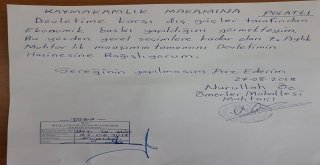 KAYMAKAMLIK MAKAMINA
POLATLI
Devletime karşı dış güçler tarafından
Ekonomik baskı yapıldığını görmekteyim.
Bu yüzden yerel seçimlere kadar olan 7 Aylık
Muhtarlık maaşımın tamamını Devletimin
Hazinesine Bağışlıyorum.
Gereğinin yapılmasını Arz Ederim
27-08-2018
Nurullah Öz
Ömerler Mahallesi
Muhtarı